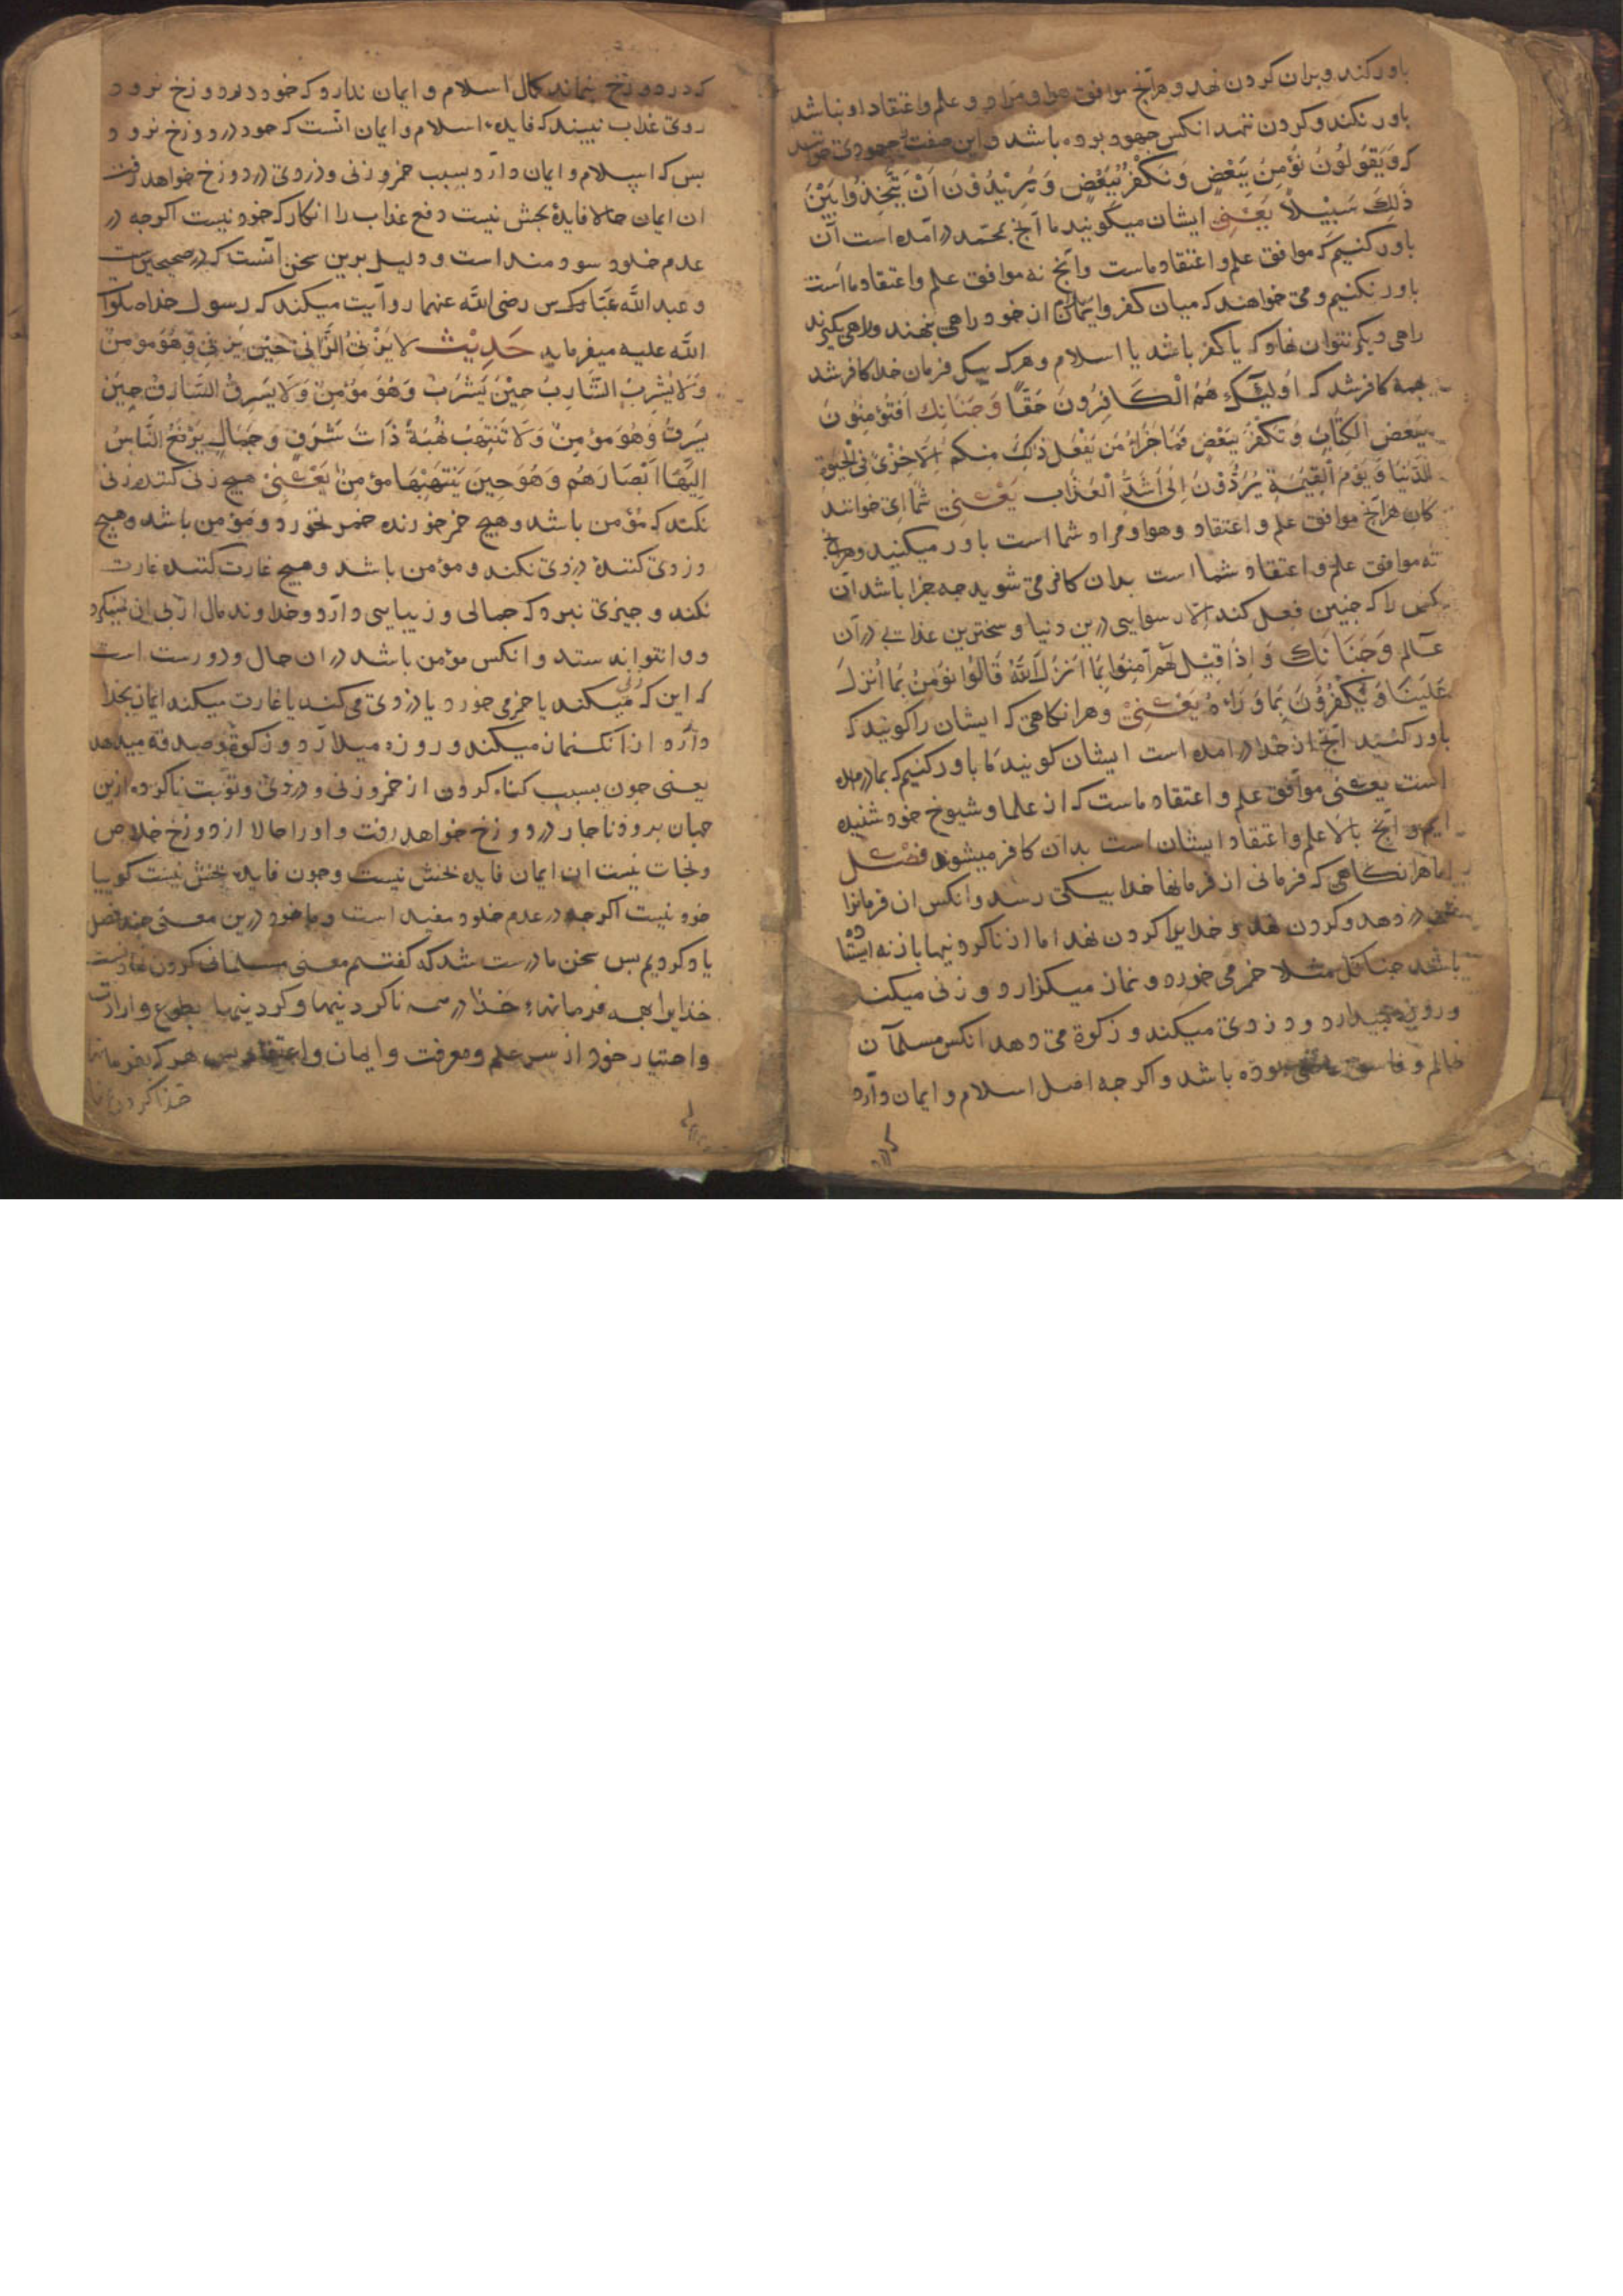 باور کند و بران کردن نهد و هرآنچ موافق هوا و مراد و علم و اعتقاد او نباشد
باور نکند و کردن ننهد انکس جهود بوده باشد و این صفت جهودی
که وَيَقُولُونَ نُؤْمِنُ بِبَعْضٍ وَنَكْفُرُ بِبَعْضٍ وَيُرِيْدُوْنَ اَنْ يَتَّخِذُوا بَيْنَ
ذٰلِكَ سَبِيْلاً يَعْنِى ایشان میکویند ما آنچ بمحمد درآمده است آن
باور کنیم که موافق علم و اعتقاد ماست وانچ نه موافق علم و اعتقاد ما است
باور نکنیم و می خواهند که میان کفر و ایمان از خود راهی بنهند و راهی بکیرند
راهی دیکر نتوان نهاد که یا کفر باشد یا اسلام و هرک بیک فرمان خدا کافر شد
بهمه کافر شد که اُولٰئِكَ هُمُ الْكَافِرُونَ حَقًّا وَچنانك اَفَتُؤْمِنُونَ
بِبَعْضِ الْكِتَابِ وَتَكْفُرُونَ بِبَعْضٍ فَمَا جَزَاءُ مَن يَفْعَلُ ذٰلِكَ مِنكُمْ اِلَّا خِزْىٌ فِى الْحَيٰوةِ
الدُّنْيَا وَ يَوْمَ الْقِيٰمَةِ يُرَدُّوْنَ اِلٰى اَشَدِّ الْعَذَاب يَعْنِىْ شما ای خوانند
کان هرآنچ موافق علم و اعتقاد و هوا و مراد شما است باور میکنید و هرانچ
نه موافق علم و اعتقاد شما است بدان کافر می شوید جه جزا باشد آن
کس را که جنین فعل کند الا رسوایی درین دنیا و سخترین عذابی در آن
عالم وَچنانك وَ اِذَا قِيْلَ لَهُمْ آمِنُوا بِمَا اَنْزَلَ اللّٰهُ قَالُوا نُؤْمِنُ بِمَا اُنْزِلَ
عَلَيْنَا وَ يَكْفُرُوْنَ بِمَا وَرَاءَهُ يَعْنِىْ و هرانکاهی که ایشان را کویند که
باور کنید آنچ از خدا درامده است ایشان کویند ما باور کنیم که بما درامده
است یعنی موافق علم و اعتقاد ماست که از علما و شیوخ خود شنیده
ایم و انچ بالاء علم و اعتقاد ایشان است بدان کافر میشوند فصل
اما هرانکاهی که فرمانی از فرمانهاء خدا بیکی رسد و انکس ان فرمانرا
در دهد و کردن نهد و خدایرا کردن نهد اما از ناکردونیها باز نه ایستا
باشد جنانك مثلا خمر می خورد و نماز میکزارد و زنی میکند
و روزه میدارد و دزدی میکند و زکوة می دهد انکس مسلمان
ظالم و فاسق بوده باشد و اکرجه اصل اسلام و ایمان دارد
که در دوزخ بنماند کمال اسلام و ایمان ندارد که خود در دوزخ نرود
روی عذاب نبیند که فایدۀ اسلام و ایمان انست که خود در دوزخ نرود
بس که اسلام و ایمان دارد بسبب خمر و زنی و دزدی در دوزخ خواهد رفت
ان ایمان حالا فایدۀ بخش نیست دفع عذاب را انکار که خود نیست اکرجه در
عدم خلود سودمند است و دلیل برین سخن انست که در صحیحین است
و عبد الله عباس رضی الله عنهما روایت میکند که رسول خدا صلوا
الله علیه میفرماید حَدِيْث لَا يَزْنِى الزَّانِى حِيْنَ يَزْنِى وَهُوَ مُؤْمِنٌ
وَلَا يَشْرِبُ الشَّارِبُ حِيْنَ يَشْرَبُ وَهُوَ مُؤْمِنٌ وَلَا يَسْرِقُ السَّارِقُ حِيْنَ
يَسْرِقُ وَهُوَ مؤْمِنٌ وَلَا تَنْتَهِبُ نُهْبَةً ذَاتَ شَرَفٍ وَجَمَالٍ يَرْفَعُ النَّاسُ
اِلَيْهَا اَبْصَارَهُم وَهُوَ حِينَ يَنْتَهِبُهَا مؤمِنٌ يَعْنِىْ هیج زنی کننده زنی
نکند که مؤمن باشد و هیج خمر خورنده خمر نخورد و مؤمن باشد و هیج
دزدی کنندۀ دزدی نکند و مؤمن باشد و هیج غارت کننده غارت
نکند و جیزی نبرد که جمالی و زیبایی دارد و خداوند مال از پی ان
و وا نتواند ستد و انکس مؤمن باشد در ان حال و درست است
که این که زنی میکند یا خمر می خورد یا دزدی می کند یا غارت میکند ایمان بخدا
دارد از انک نماز میکند و روزه میدارد و زکوة و صدقه میدهد
یعنی جون بسبب کناه کردن از خمر و زنی و دزدی و توبت ناکرده ازین
جهان برود ناجار در دوزخ خواهد رفت و او را حالا از دوزخ خلاص
و نجات نیست ان ایمان فایده بخش نیست و جون فایده بخش نیست کوییا
خود نیست اکرجه در عدم خلود مفید است و ما خود درین معنی جند فصل
یاد کردیم بس سخن ما درست شد که کفتیم معنی مسلمانی کردن نهادنست
خدایرا بهمه فرمانهاء خدا در همه ناکردنیها و کردنیها بطوع و ارادت
و اختیار خود از سر علم و معرفت و ایمان و اعتقاد بس هرکه بفرمانها
خدا کردن